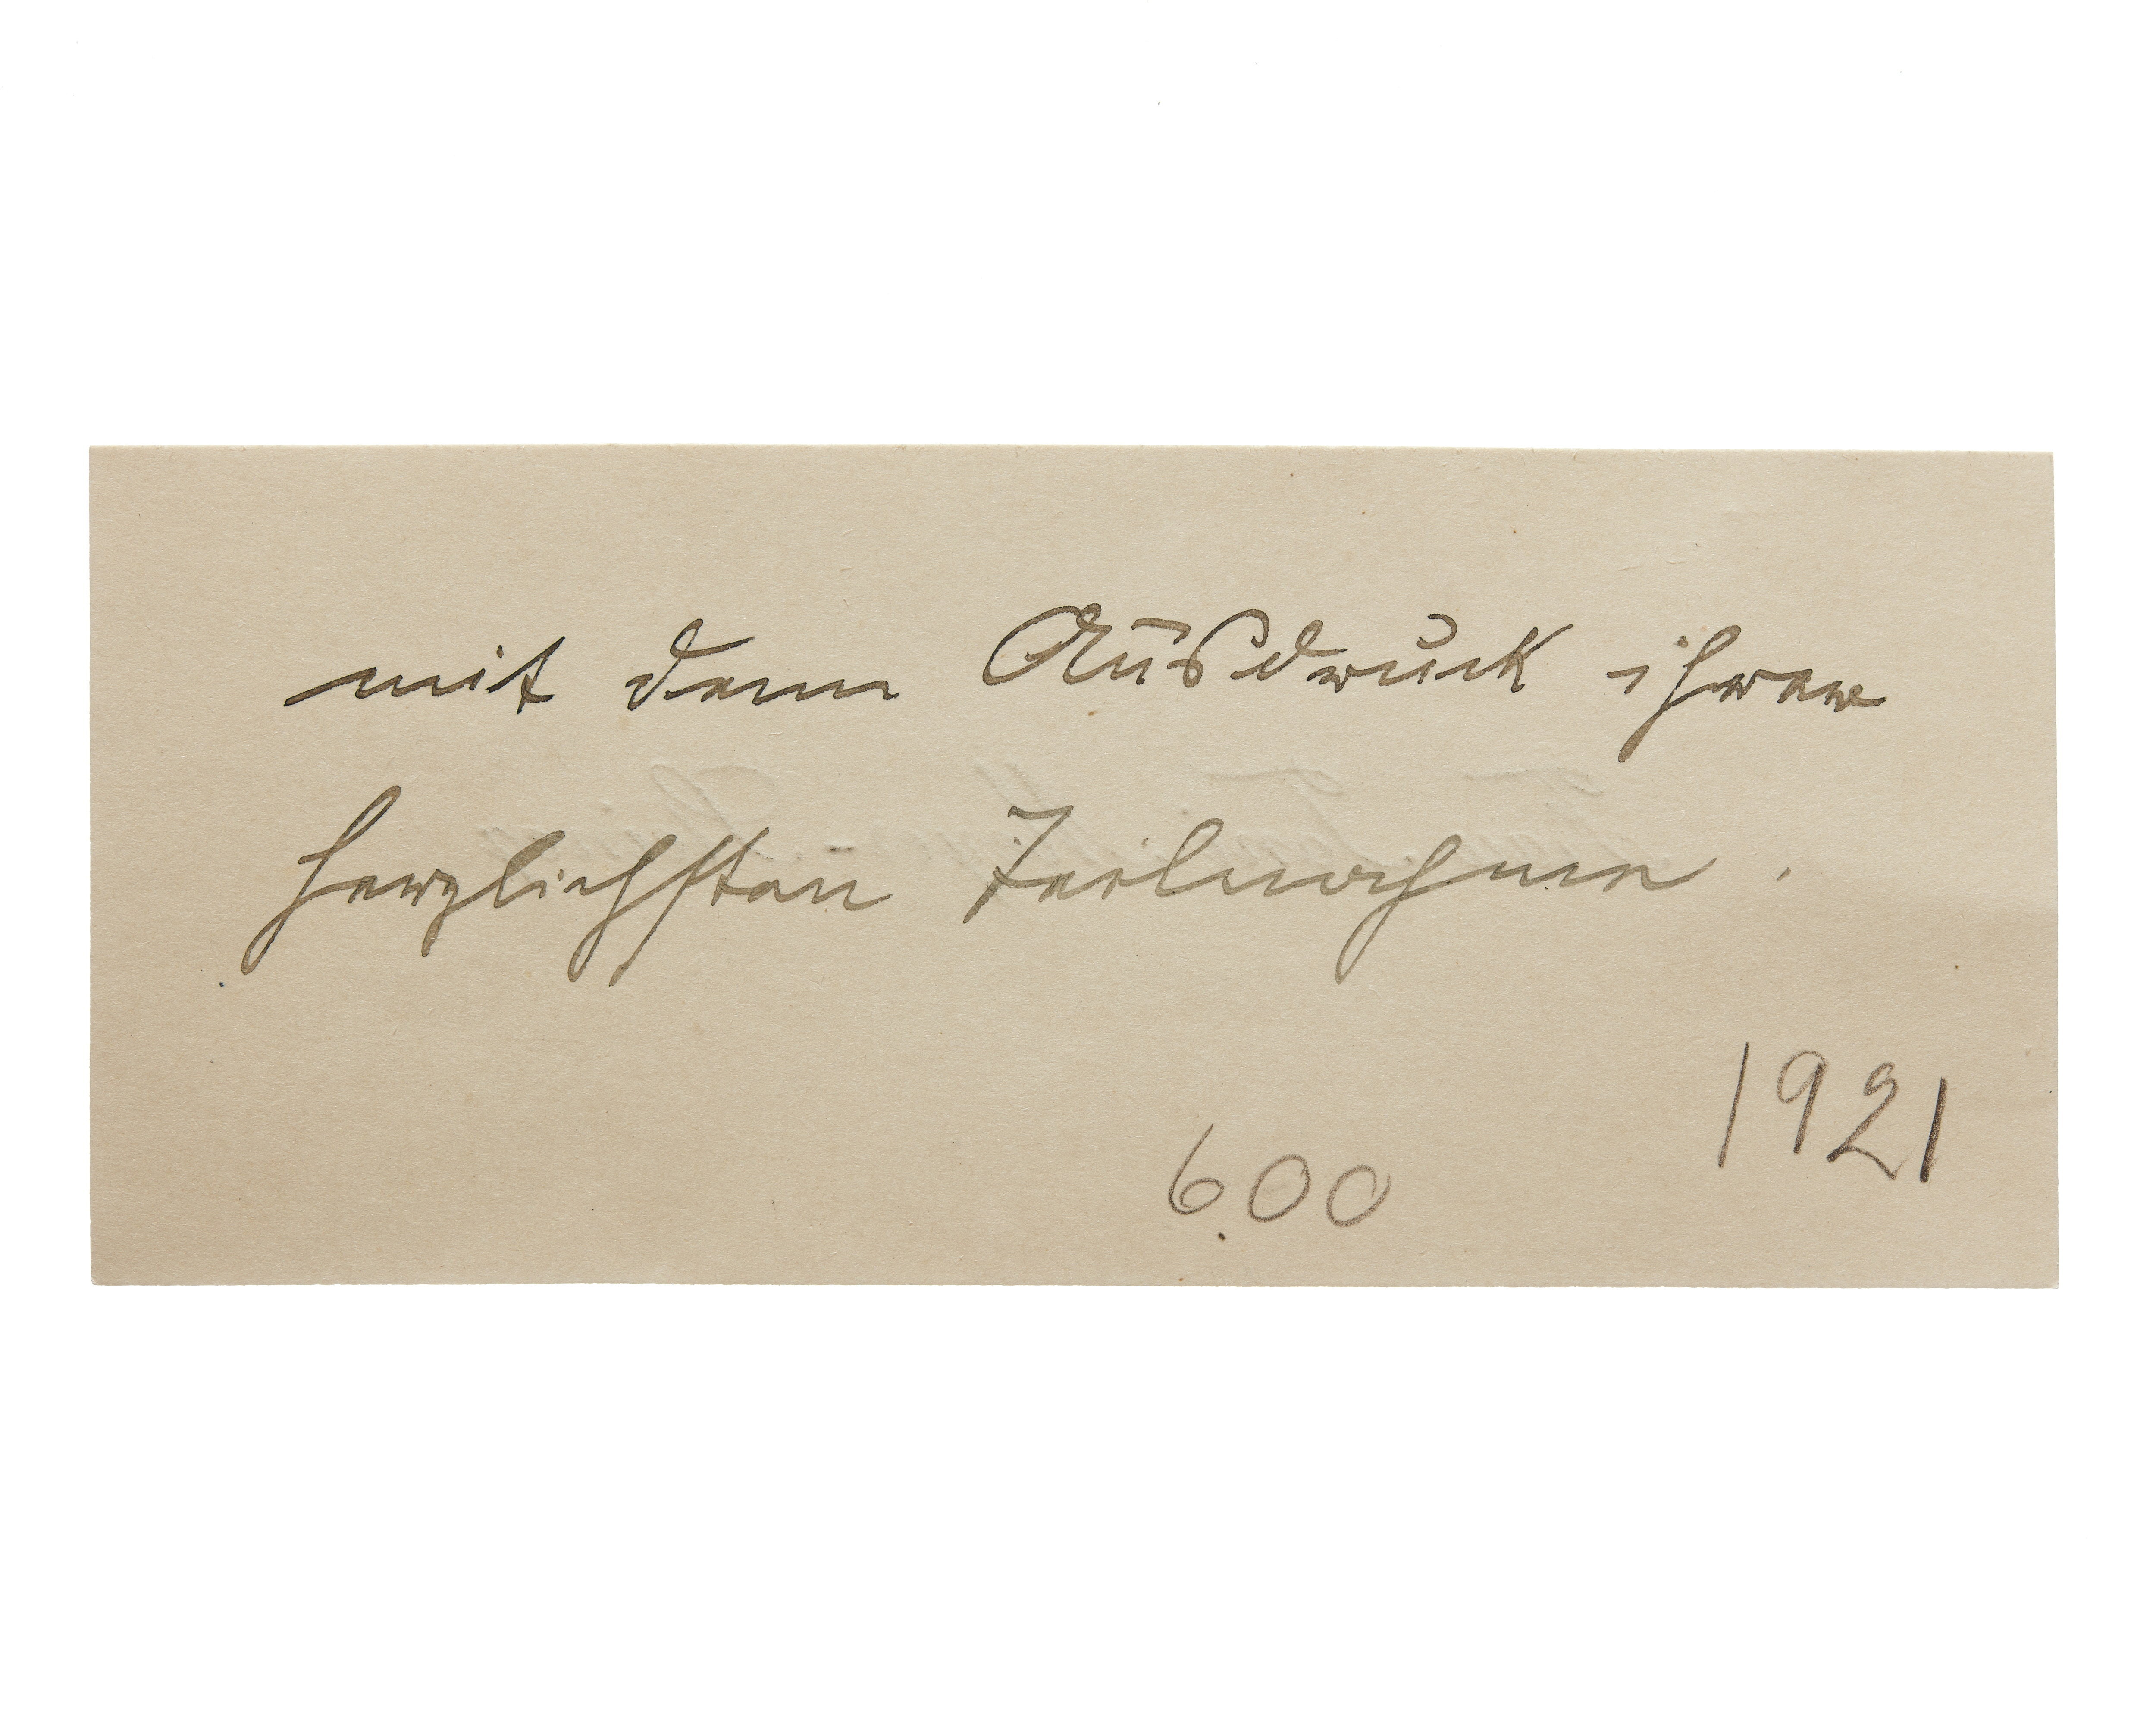 mit dem Ausdruck ihrer
herzlichsten Teilnahme.
1921
600